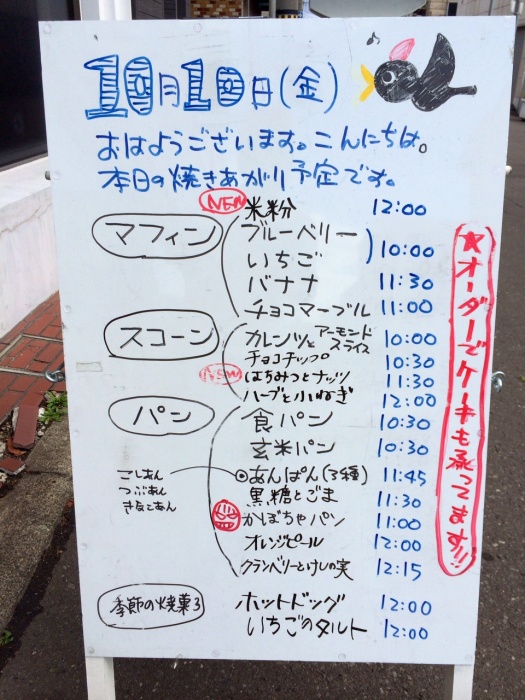 10月10日(金)
おはようございます。こんにちは。
本日の焼きあがり予定です。
マフィン
NEW 米粉 12:00
ブルーベリー
いちご 10:00
バナナ 11:30
チョコマーブル 11:00
スコーン
カレンツとアーモンドスライス 10:00
チョコチップ 10:30
NEW はちみつとナッツ 11:30
ハーブと小ねぎ 12:00
パン
食パン 10:30
玄米パン 10:30
こしあん
つぶあん
きなこあん
あんぱん(3種) 11:45
黒糖とごま 11:30
かぼちゃパン 11:00
オレンジピール 12:00
クランベリーとけしの実 12:15
季節の焼菓子
ホットドッグ 12:00
いちごのタルト 12:00
★オーダーでケーキも承ってます!!